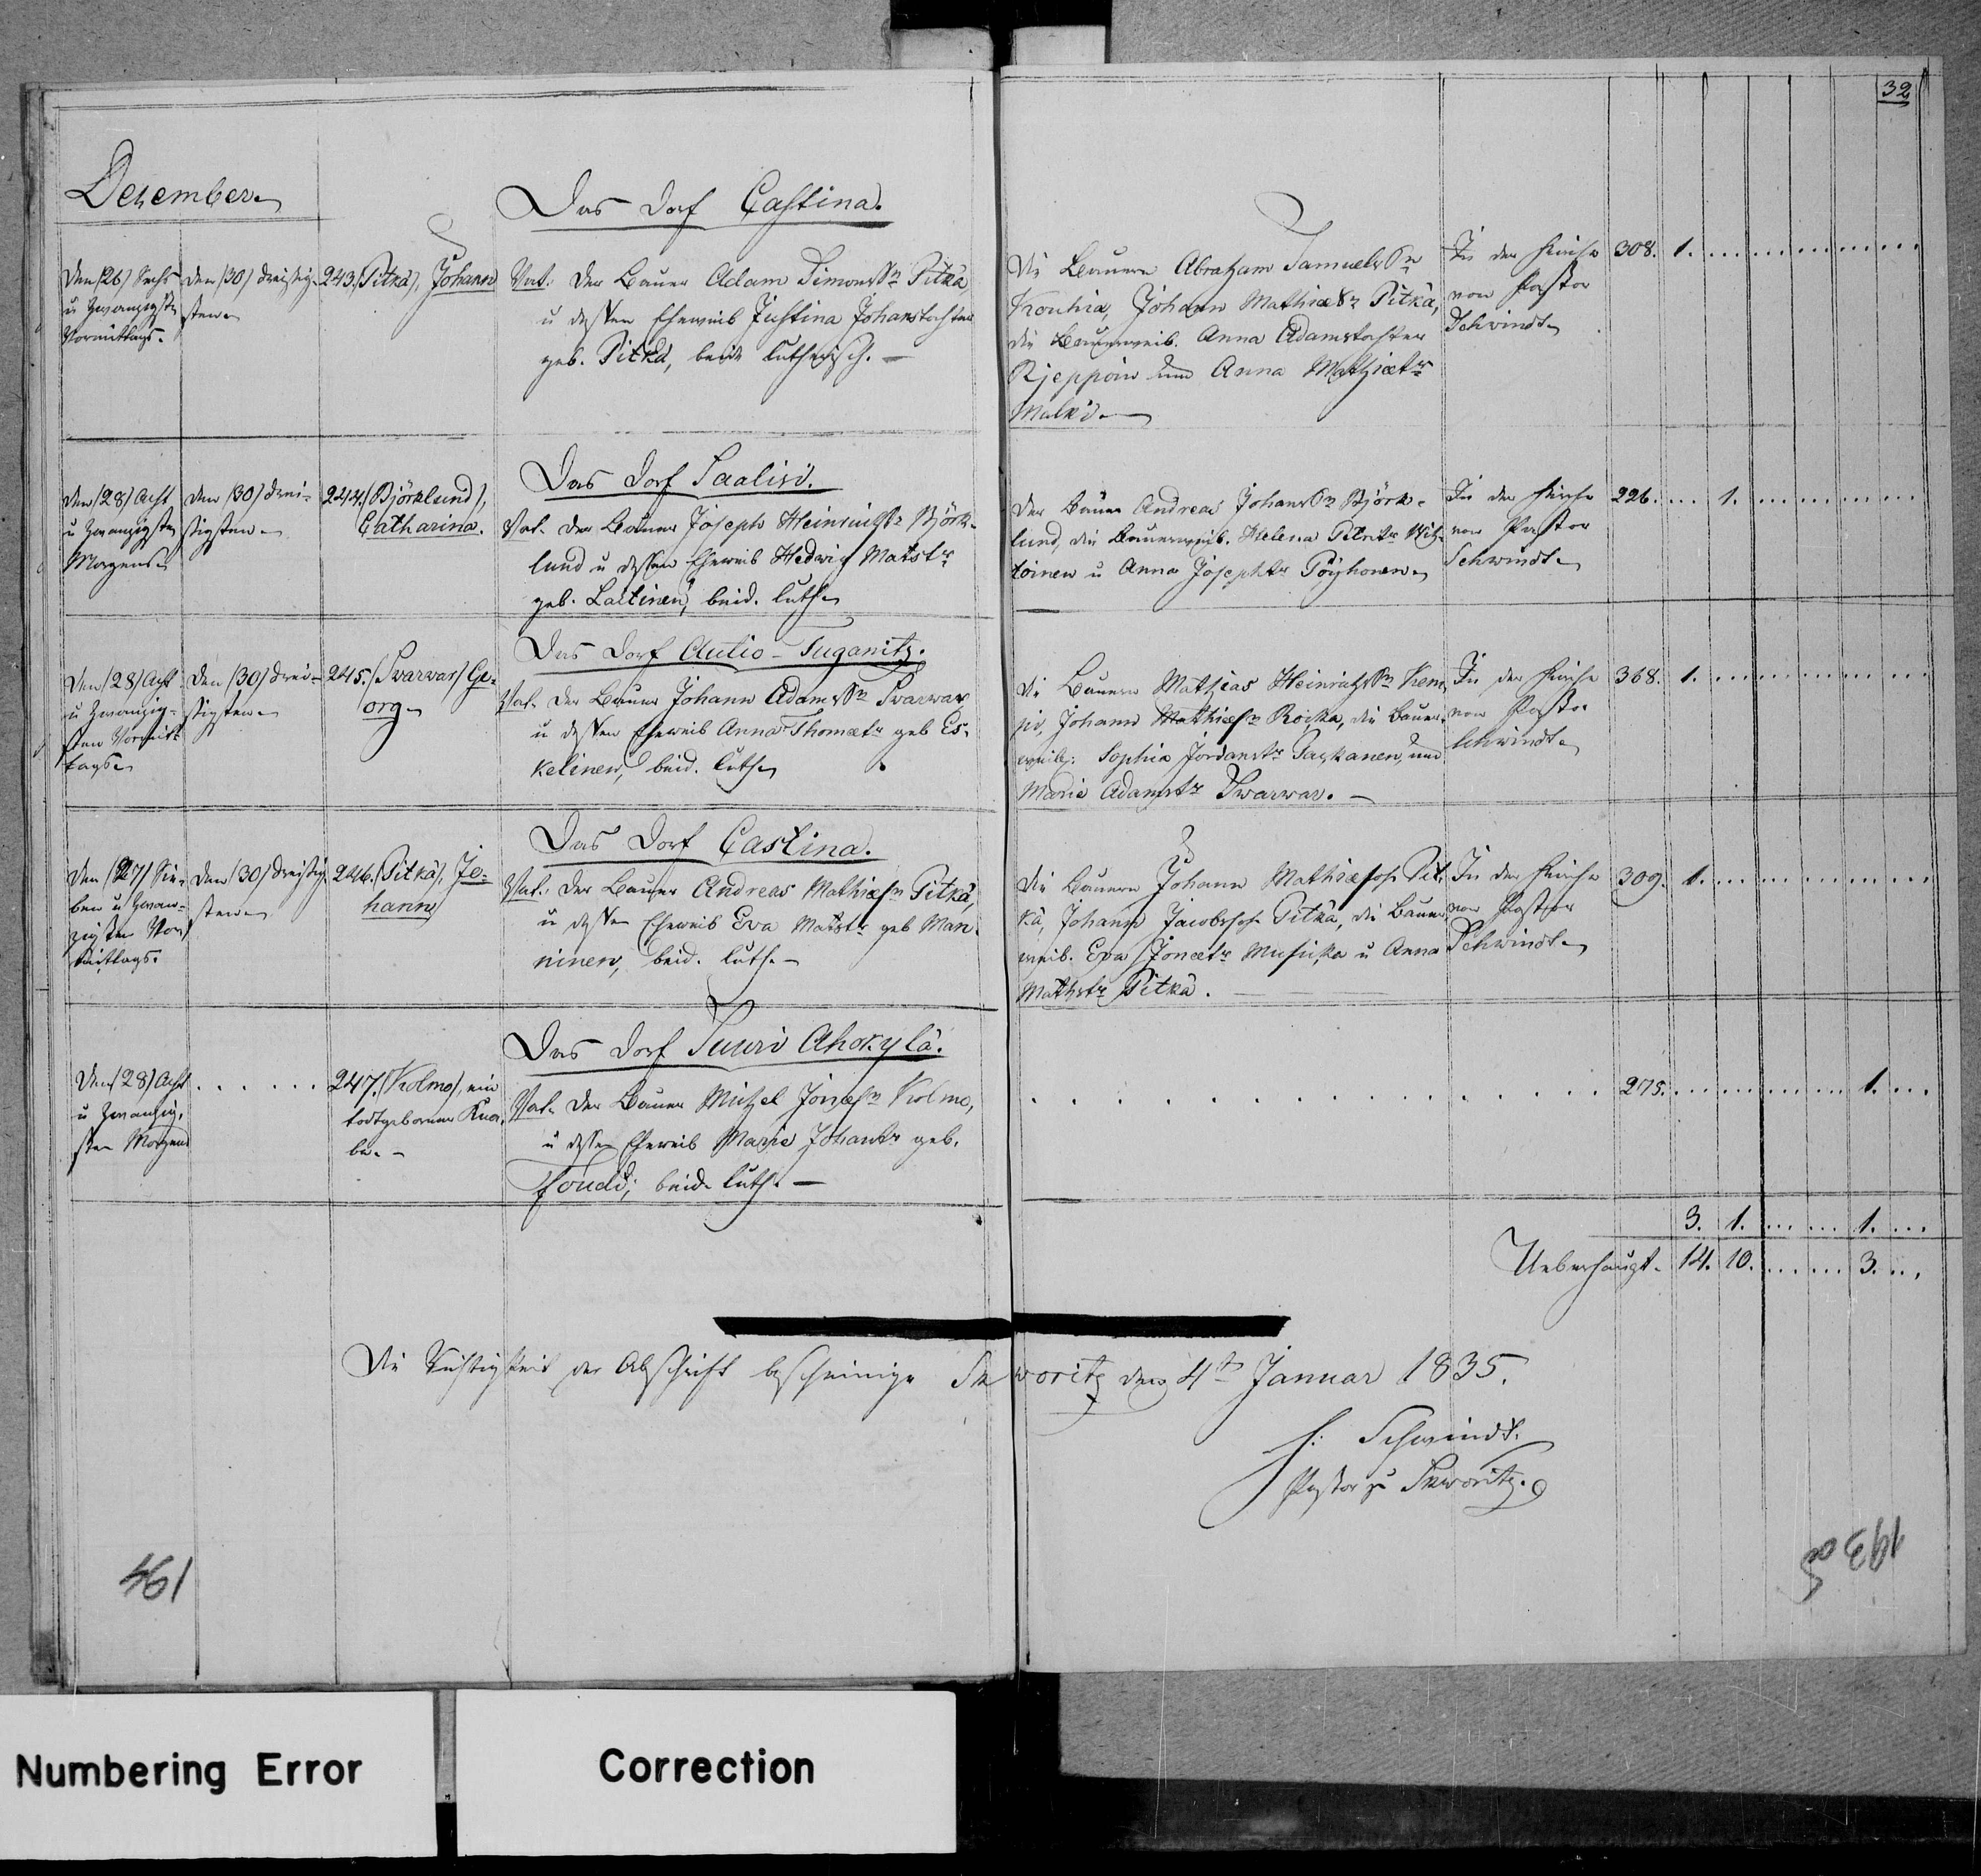 32
Dezember
Das Dorf Castina.
Den (26) Sechs
u Zwanzigsten
Vormittags.
den (30) dreißig-
sten
243. (Pitkä), Johann
Vat: der Bauer Adam Simons Sn Pitkä
u dessen Eheweib Justina Johanstochter
geb. Pitkä, beide lutherisch. —
Die Bauern Abraham Samuels Sn
Kouhia, Johann Mathiæ Sn Pitkä,
die Bauerweib. Anna Adamstochter
Rjeppoin und Anna Mathiætr
In der Kirche
von Pastor
Schwindt
308. 1.
Das Dorf Saalisi.
Den (28) Acht
u Zwanzigsten
Morgens
den (30) drei-
ßigsten
244. (Björklund),
Catharina.
Vat. der Bauer Joseph Heinrichs Sn Björk-
lund u dessen Eheweib Hedwig Matstr
geb. Laitinen, beid. luth.
Der Bauer Andreas Johans Sn Björk-
lund, die Bauerweib. Helena
u Anna Josephtr Pöyhonen
In der Kirche
von Pastor
Schwindt
226. 1.
Das Dorf Autio-Suganitz.
Den (28) Acht
u Zwanzig-
sten Vormit-
tags
den (30) drei-
ßigsten
245. (Swarwar) Ge-
org
Vat. der Bauer Johann Adams Sn Swarwar
u dessen Eheweib Anna Thomætr geb Es-
kelinen, beid. luth.
Die Bauern Mathias Heinrichs Sn Kem-
pi, Johann Mathiæsn Roika, die Bauer-
weib: Sophia Jordanstr Paskanen, und
Maria Adamstr Swarwar. —
In der Kirche
von Pastor
Schwindt
368. 1.
Das Dorf Castina.
Den (27) Sie-
ben u Zwan-
zigsten Vor-
mittags.
den (30) dreißig-
sten
246. (Pitkä), Jo-
hann
Vat: der Bauer Andreas Mathiæsn Pitkä,
u dessen Eheweib Eva Matstr geb Man-
ninen, beid. luth. —
Die Bauern Johann Mathiæsoh Pit-
kä, Johann Jacobssoh Pitkä, die Bauer-
weib. Eva Jonætr Musicka u Anna
Mathstr Pitkä.
In der Kirche
von Pastor
Schwindt
309. 1.
Das Dorf Suuri Ahokylä.
Den (28) Acht
u Zwanzig-
sten Morgens
247. (Kolmo), ein
todtgeborner Kna-
be. -
Vat. der Bauer Michel Jonæsn Kolmo,
u dessen Eheweib Maria Johantr geb.
beide luth. —
275. 1.
3. 1. 1.
Ueberhaupt. 14. 10. 3.
Die Richtigkeit der Abschrift bescheinige Skworitz den 4ten Januar 1835.
Schwindt.
Pastor zu Skworitz.
194
193 об
Numbering Error
Correction